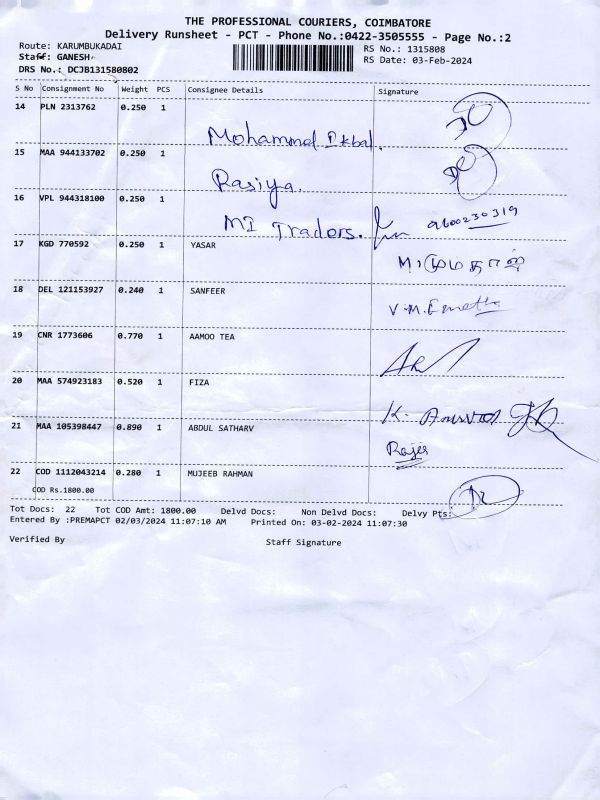 THE PROFESSIONAL COURIERS, COIMBATORE
Delivery Runsheet - PCT - Phone No.:0422-3505555 - Page No.:2
Route: KARUMBUKADAI RS No.: 1315808
Staff: GANESH RS Date: 03-Feb-2024
DRS No.: DCJB131580802
S No Consignment No Weight PCS Consignee Details Signature
14 PLN 2313762 0.250 1
Mohammed Ikbal.
15 MAA 944133702 0.250 1
Rasiya.
16 VPL 944318100 0.250 1
MI Traders. 9600230319
17 KGD 770592 0.250 1 YASAR
18 DEL 121153927 0.240 1 SANFEER
V.M.
19 CNR 1773606 0.770 1 AAMOO TEA
20 MAA 574923183 0.520 1 FIZA
K.
21 MAA 105398447 0.890 1 ABDUL SATHARV
22 COD 1112043214 0.280 1 MUJEEB RAHMAN
COD Rs.1800.00
Tot Docs: 22 Tot COD Amt: 1800.00 Delvd Docs: Non Delvd Docs: Delvy Pts:
Entered By :PREMAPCT 02/03/2024 11:07:10 AM Printed On: 03-02-2024 11:07:30
Verified By Staff Signature